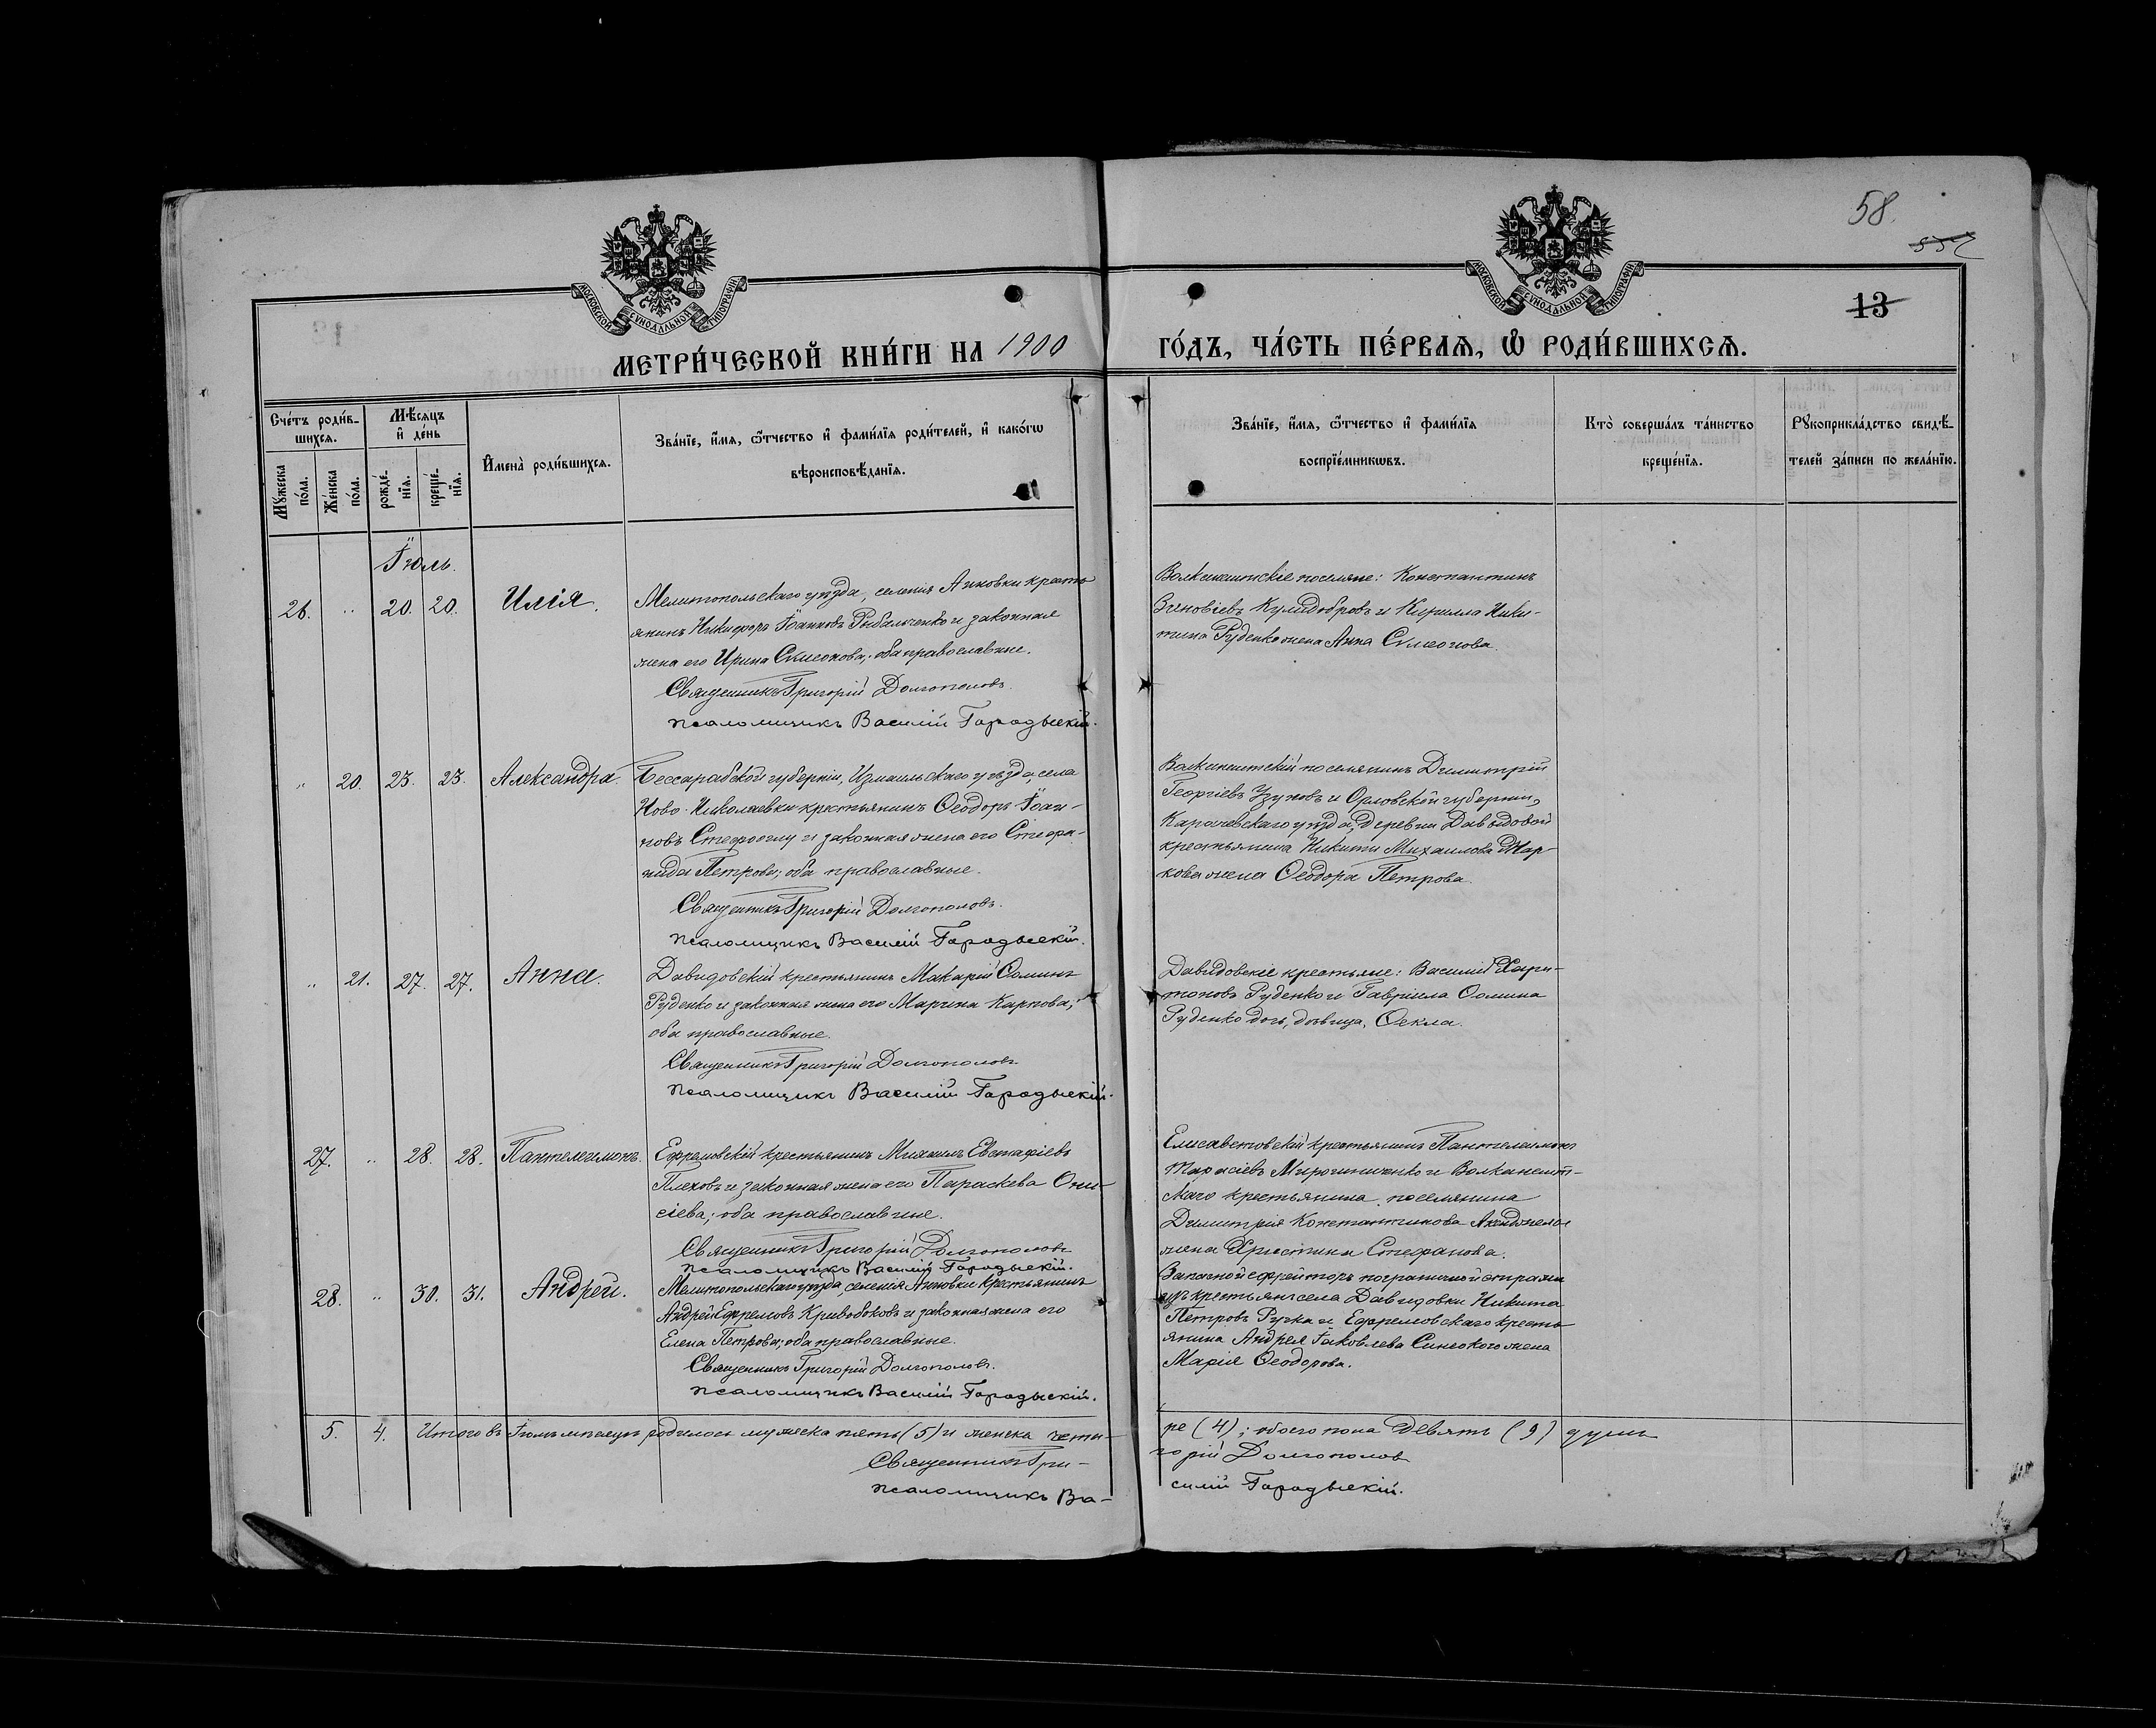 58.
13
МОСКОВСКОЙ СѴНОДАЛЬНОЙ ТИПОГРАФІИ
МОСКОВСКОЙ СѴНОДАЛЬНОЙ ТИПОГРАФІИ
МЕТРИ́ЧЕСКОЙ КНИ́ГИ НА 1900 ГО́ДЪ, ЧА́СТЬ ПЕ́РВАѦ, Ѽ РОДИ́ВШИХСѦ.
Сче́тъ роди́в-
шихсѧ.
Мꙋ́жеска по́ла.
Же́нска по́ла.
Мѣ́сѧцъ
и҆ де́нь
рожде́-
нїѧ.
креще́-
нїѧ.
И҆мена̀ роди́вшихсѧ.
Зва́нїе, и҆́мѧ, ѻ҆́тчество и҆ фами́лїѧ роди́телей, и҆ како́гѡ
вѣроисповѣ́данїѧ.
Зва́нїе, и҆́мѧ, ѻ҆́тчество и҆ фами́лїѧ
воспрїе́мникѡвъ.
Кто̀ соверша́лъ та́инство
креще́нїѧ.
Рꙋкоприкла́дство свидѣ́-
телей за́писи по жела́нїю.
Іюль.
26. " 20. 20. Илія.
Мелитопольскаго уѣзда, селенія Анновки кресть-
янинъ Никифоръ Іоанновъ Рыбальченко и законная
жена его Ирина Симеонова; оба православные.
Священникъ Григорій Долгополовъ.
псаломщикъ Василій Городыскій.
Волканештскіе поселяне: Константинъ
Зиновіевъ и Кирилла Ники-
тина Руденко жена Анна Симеонова.
" 20. 23. 23. Александра.
Бессарабской губерніи, Измаильскаго уѣзда, села
Ново-Николаевки крестьянинъ Ѳеодоръ Іоан-
новъ и законная жена его Стефа-
нида Петрова; оба православные.
Священникъ Григорій Долгополовъ.
псаломщикъ Василій Городыскій.
Волканештскій поселянинъ Димитрій
Георгіевъ Узуновъ и Орловской губерніи,
Карачевскаго уѣзда, деревни Давыдовой
крестьянина Никиты Михаилова Мар-
кова жена Ѳеодора Петрова.
" 21. 27. 27. Анна.
Давидовскій крестьянинъ Макарій Ѳоминъ
Руденко и законная жена его Марина Карпова;
оба православные.
Священникъ Григорій Долгополовъ
псаломщикъ Василій Городыскій.
Давидовскіе крестьяне: Василій Хари-
тоновъ Руденко и Гавріила Ѳомина
Руденко дочь, дѣвица, Ѳекла.
27. " 28. 28. Пантелеимонъ.
Ефремовскій крестьянинъ Михаилъ Евстафіевъ
Плеховъ и законная жена его Параскева Они-
сіева; оба православные.
Священникъ Григорій Долгополовъ
псаломщикъ Василій Городыскій.
Елисаветовскій крестьянинъ Пантелеимонъ
Тарасіевъ Мирошниченко и Волканешт-
скаго крестьянина поселянина
Димитрія Константинова
жена Христина Стефанова.
28. " 30. 31. Андрей.
Мелитопольскаго уѣзда, селенія Анновки крестьянинъ
Андрей Ефремовъ Кривобоковъ и законная жена его
Елена Петрова; оба православные.
Священникъ Григорій Долгополовъ.
псаломщикъ Василій Городыскій.
Запасной ефрейторъ пограничной стражи
изъ крестьянъ села Давидовки Никита
Петровъ Ручка и Ефремовскаго кресть-
янина Андрея Іаковлева Синеокого жена
Марія Ѳеодорова.
5. 4. Итого въ Іюлѣ мѣсяцѣ родилось мужеска пять (5) и женска четы-
ре (4); обоего пола девять (9) душъ
Священникъ Гри-
горій Долгополовъ
псаломщикъ Ва-
силій Городыскій.